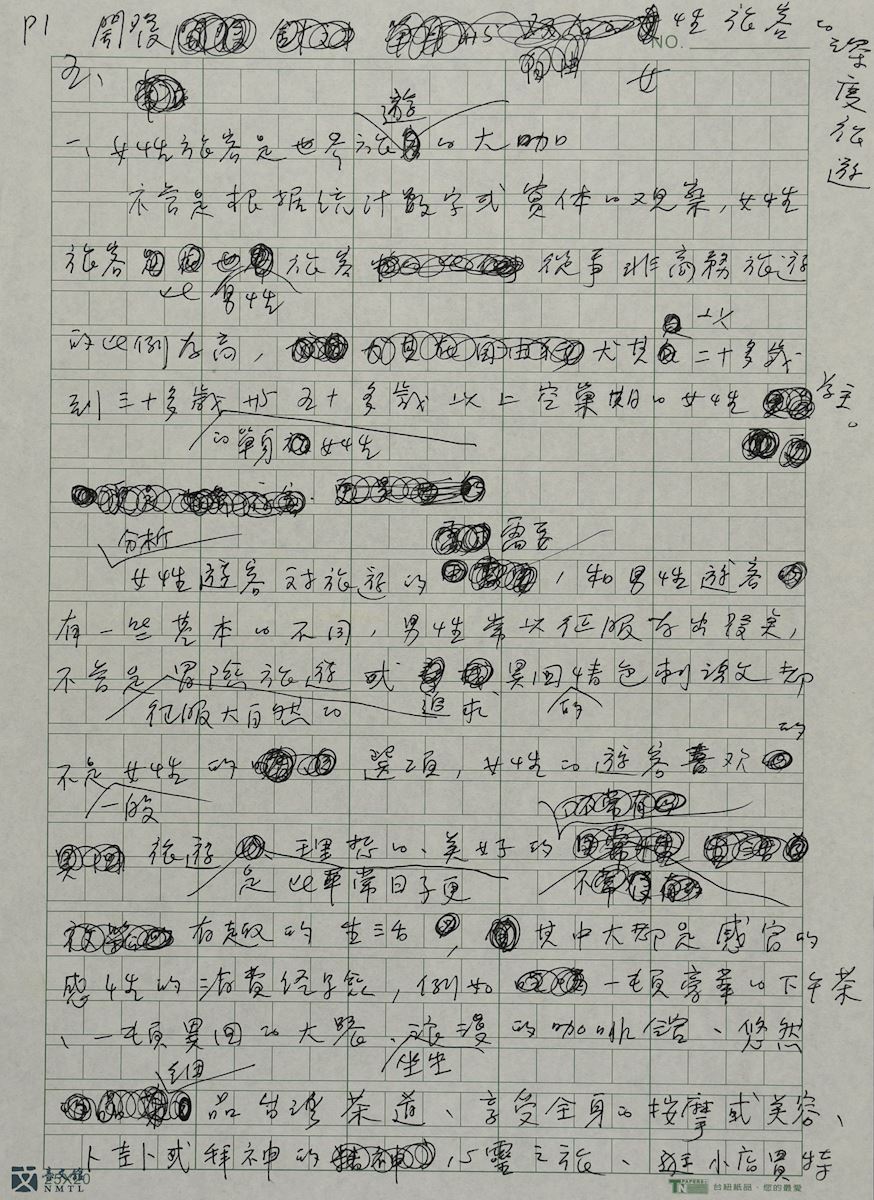 P1 開發 女性旅客的深度旅遊
NO.
五、
一、女性旅客是世界旅遊的大咖
不管是根据統計數字或實体的观察,女性
旅客比男性旅客從事非商務旅遊
的比例為高,尤其以二十多歲
到三十多歲的單身女性和五十多歲以上空巢期的女性為主。
分析女性遊客对旅遊的需要,和男性遊客
有一些基本的不同,男性常以征服為出發美,
不管是征服大自然的冒險旅遊或追求異国情色的刺激都
不是一般女性的選項,女性的遊客喜欢的
旅遊是比平常日子更理想的、美好的
有趣的生活,其中大都是感官的
感性的消費經驗,例如一頓豪華的下午茶
、一頓異国的大餐、坐坐浪漫的咖啡館、悠然
細品台灣茶道、享受全身的按摩或美容、
卜卦或拜神的心靈之旅、逛小店買特
25×20
NMTL
TN PAPERS 台紐紙品.您的最愛